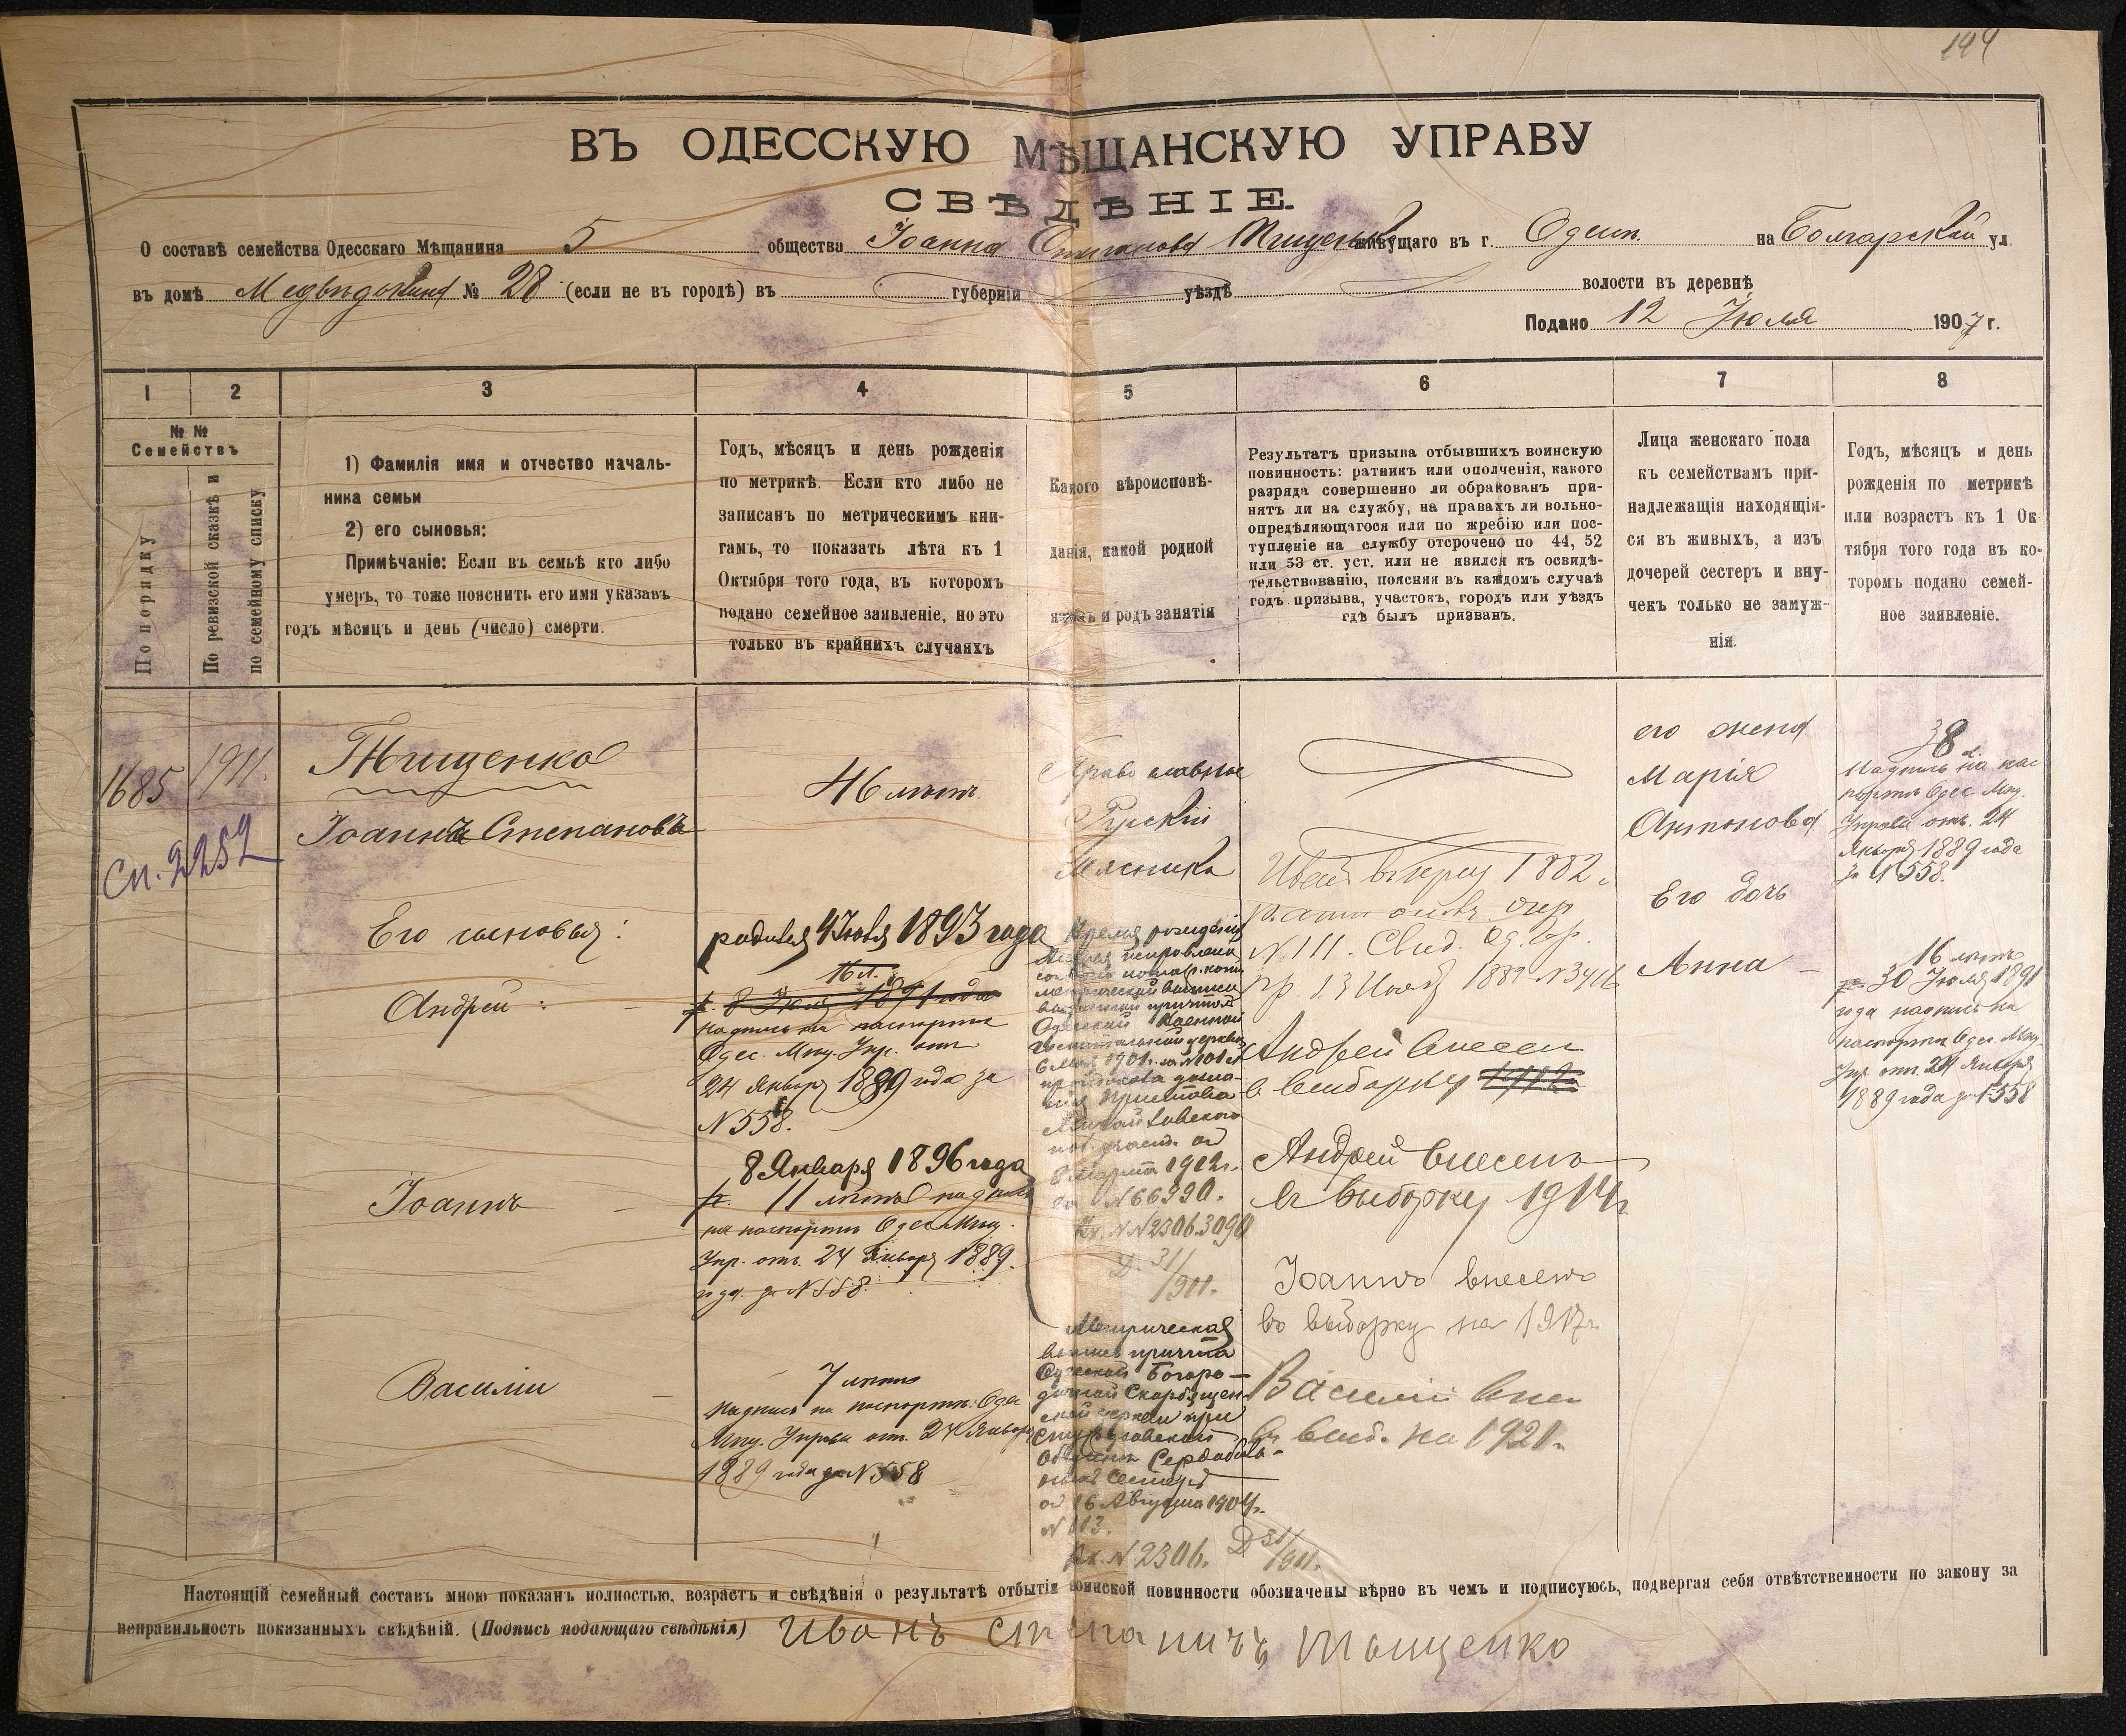 144
ВЪ ОДЕССКУЮ МѢЩАНСКУЮ УПРАВУ
СВѢДѢНІЕ.
О составѣ семейства Одесскаго Мѣщанина 5 общества Іоанна Степанова Тищенко живущаго въ г. Одессѣ на Болгарской ул
въ домѣ № 28 (если не въ городѣ) въ губерніи уѣздѣ волости въ деревнѣ
Подано 12 Іюля 1907 г.
1 2 3 4 5 6 7 8
№ №
Семействъ
По порядку
По ревизской сказкѣ и
по семейному списку
1) Фамилія имя и отчество началь-
ника семьи
2) его сыновья:
Примѣчаніе: Если въ семьѣ кто либо
умеръ, то тоже пояснить его имя указавъ
годъ мѣсяцъ и день (число) смерти.
Годъ, мѣсяцъ и день рожденія
по метрикѣ. Если кто либо не
записанъ по метрическимъ кни-
гамъ, то показать лѣта къ 1
Октября того года, въ которомъ
подано семейное заявленіе, но это
только въ крайнихъ случаяхъ
Какого вѣроисповѣ-
данія, какой родной
языкъ и родъ занятія
Результатъ призыва отбывшихъ воинскую
повинность: ратникъ или ополченія, какого
разряда совершенно ли обракованъ при-
нятъ ли на службу, на правахъ ли вольно-
опредѣляющагося или по жребію или пос-
тупленіе на службу отсрочено по 44, 52
или 53 ст. уст. или не явился къ освидѣ-
тельствованію, поясняя въ каждомъ случаѣ
годъ призыва, участокъ, городъ или уѣздъ
гдѣ былъ призванъ.
Лица женскаго пола
къ семействамъ при-
надлежащія находящія-
ся въ живыхъ, а изъ
дочерей сестеръ и вну-
чекъ только не замуж-
нія.
Годъ, мѣсяцъ и день
рожденія по метрикѣ
или возрастъ къ 1 Ок-
тября того года въ ко-
торомъ подано семей-
ное заявленіе.
1685
1911.
Сп. 2252
Тищенко
Іоаннъ Степановъ
Его сыновья:
Андрей:
Іоаннъ
Василій
46 лѣтъ
родился 4 Іюля 1893 года
16 л.
р. 8 Іюля 1891 года
надпись на паспортѣ
Одес. Мѣщ. Упр. отъ
24 Января 1889 года за
N 558.
8 Января 1896 года
р. 11 лѣтъ надпись
на паспортѣ Одес. Мѣщ.
Упр. отъ 24 Января 1889
года за N 558.
7 лѣтъ
надпись на паспортѣ Одес
Мѣщ. Управы отъ 24 Января
1889 года за N 558
Православное
Русскій
Мясникъ
Время рожденія
Андрея исправлено
метрической выписи
Одесской Военной
госпитальной церкви
пристава
Михайловского
8 Марта 1912 г.
за N 66990.
Вх. N N 2306. 3090
Д. 31/1911.
Метрическая
выпись причта
Одесской Богоро-
дичной Скорбящен-
ской церкви при
Стурдзовской
Общинѣ Сердоболь-
ныхъ Сестеръ
от 16 Августа 1904 г.
N 113.
Вх. N 2306. Д 31/1911.
1882
N 111. Свид. Од. Гор.
пр. 13 1882 N 3416
Андрей внесен
в выборку 1912
Андрей внесенъ
въ выборку 1914 г
Іоаннъ внесенъ
въ выборку на 1917 г.
Василій внес
въ выб. на 1921 г.
его жена
Марія
Антонова
Его дочь
Анна
38 л.
Надпись на пас
портѣ Одес. Мѣщ.
Управы отъ 24
Января 1889 года
за N 558.
16 лѣтъ
р. 30 Іюля 1891
года надпись на
паспортѣ Одес. Мѣщ.
Упр. отъ 24 Января
1889 года за N 558
Настоящій семейный составъ мною показанъ полностью, возрастъ и свѣдѣнія о результатѣ отбытія воинской повинности обозначены вѣрно въ чемъ и подписуюсь, подвергая себя отвѣтственности по закону за
неправильность показанныхъ свѣдѣній. (Подпись подающаго свѣдѣнія) Иванъ Степаничъ Тыщенко